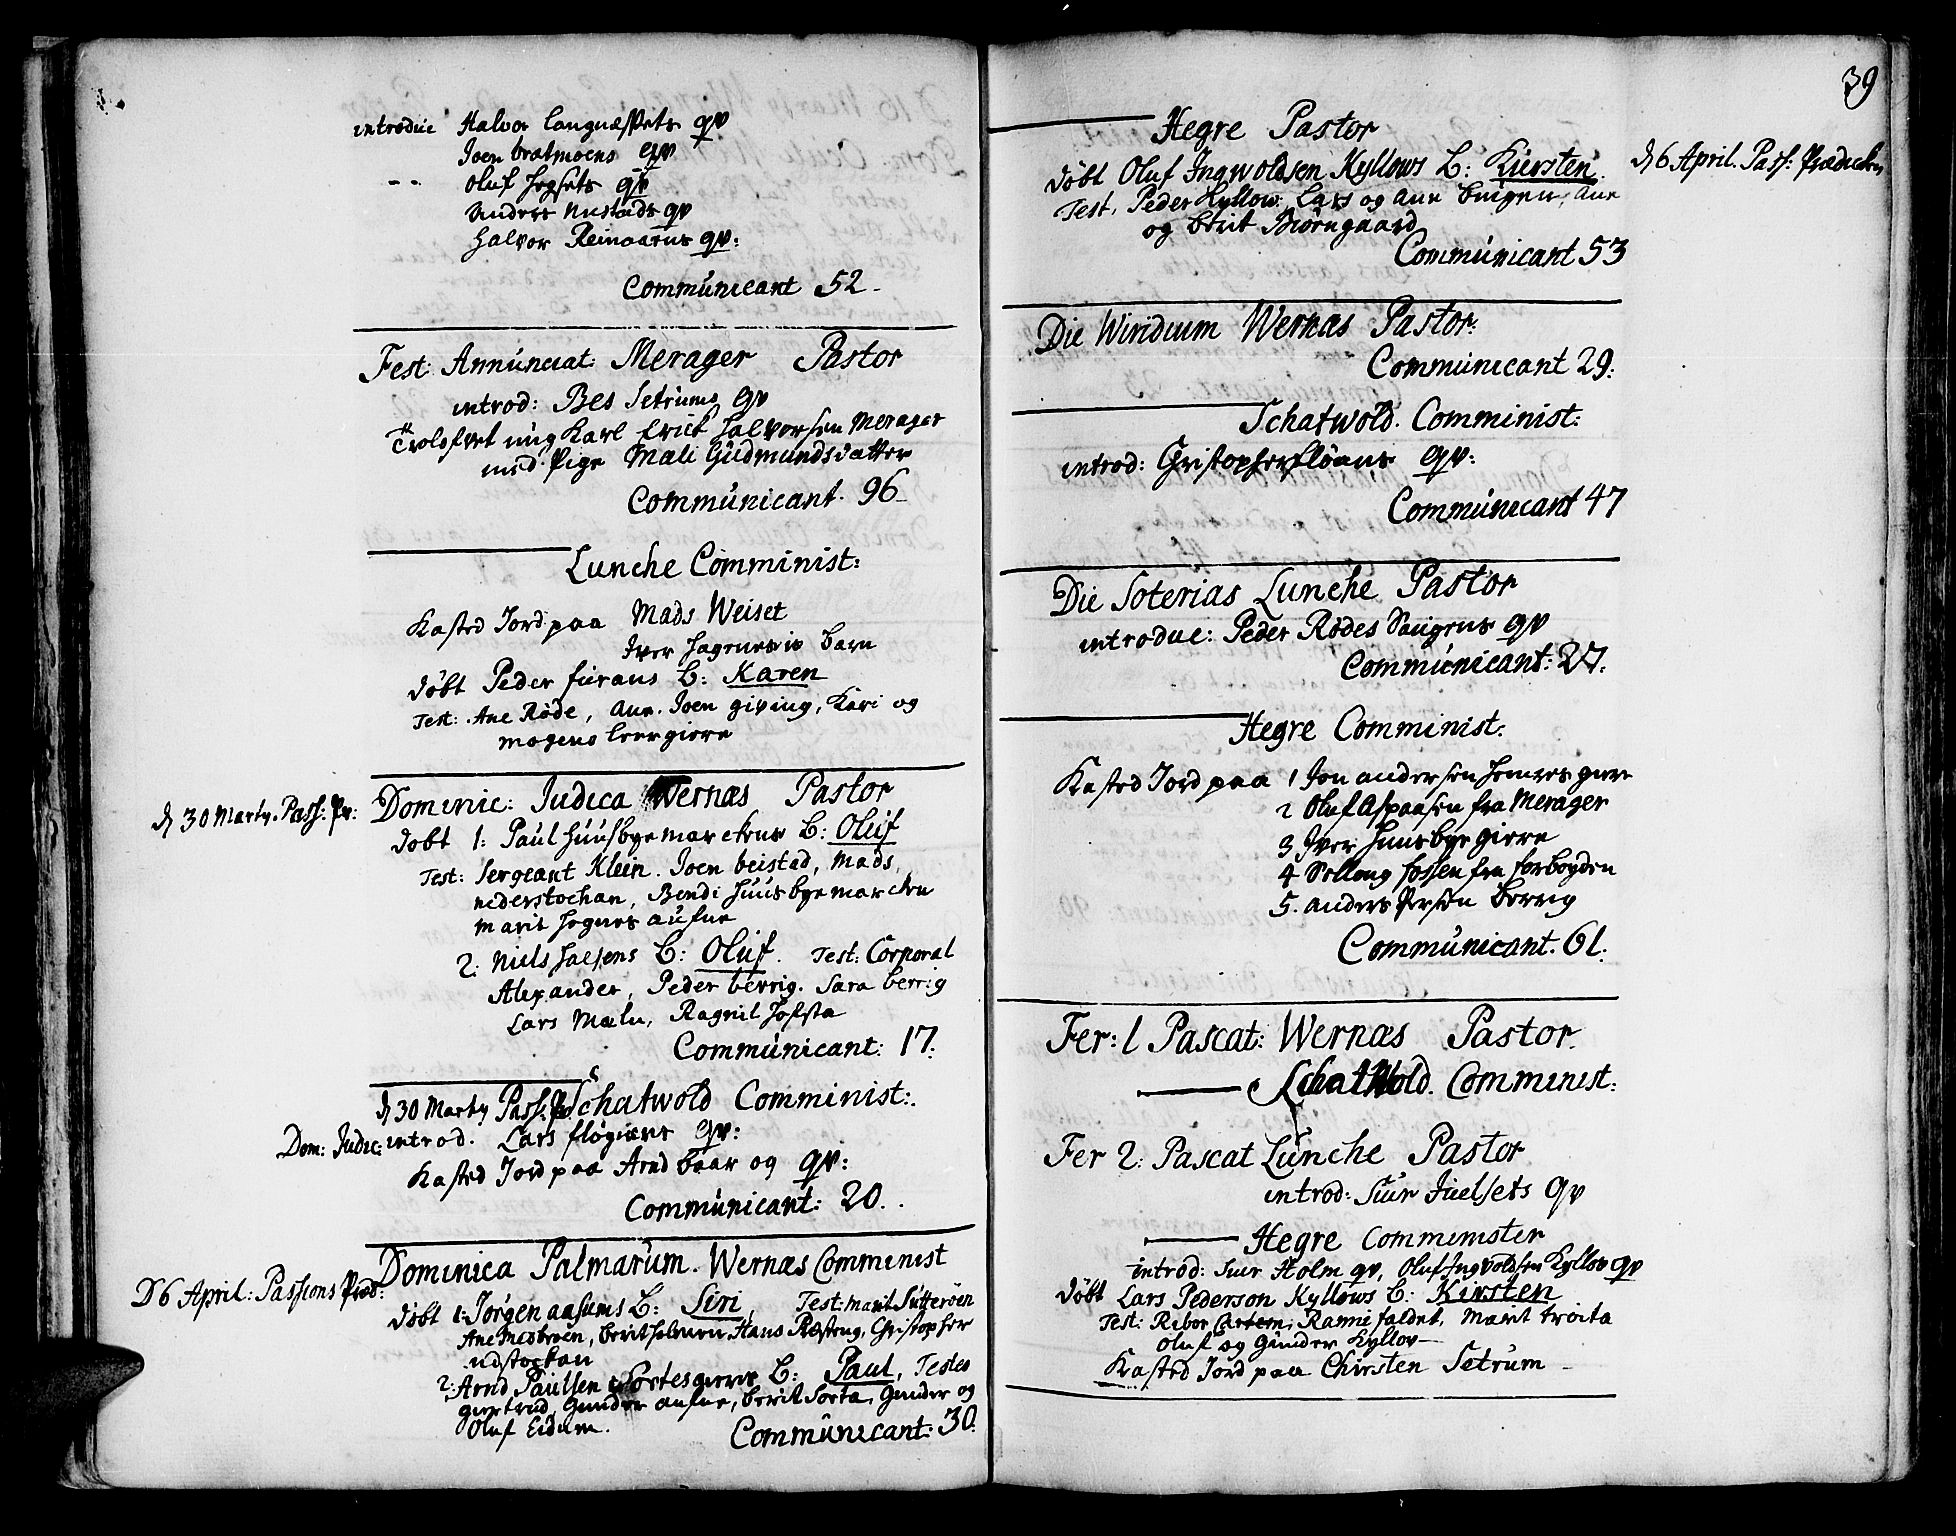 introduc Halvor Langnæssets qv
Joen bratmoens qv
- - Oluf hegsets qv
Anders Mustads qv
Halvor Reinaarns qv:
Communicant 52 -
Fest: Annunciat: Merager Pastor
introd: Bes Setrums qv
Trolofvet ung Karl Erick Halvorsen Merager
med Pige Mali Gudmundsdatter
Communicant. 96
Lunche Comminist:
Kasted Jord paa Mads Weiset
Iver hagenes barn
døbt Peder fierans B: Karen
Test: Ane Røde, Ane. Joen giving, Kari og
mogens leergiere
d 30 Marty. Pass: Pr: Dominic: Judica Wernæs Pastor
døbt 1: Paul Huusbyemarckens B: Oluf
Test: Sergeant Klein. Joen beistad, Mads,
nederstochan, Bendi Huusbyemarcken
marit hognes aufne
2: Niels halsens B: Oluf. Test: Corporal
Alexander, Peder berrig. Sara berrig
Lars Mæle, Ragnil Hofsta
Communicant: 17:
Schatwold Comminist:
d 30 Marty Pass: Pr
Dom: Judic: introd. Lars fløgiærs qv:
Kasted Jord paa Arnd baar og qv:
Communicant: 20. .
D 6 April: Passions Præd: Dominica Palmarum. Wernæs Comminist
døbt 1: Jørgen aasums B: Siri, Test: marit Sutterøen
Ane Medbroen, berit holmen, Hans Ræsteng, Christopher
udstockan
2: Arnd Paulsen Sortesgiere B: Paul, Testes
giertrud, Gunder aufne, berit Sorta, Gunder og
Oluf Eidum.
Communicant: 30.
39
Hegre Pastor
d 6 April. Pass: Prædicken
døbt Oluf Ingwoldsen Kyllows B: Kiersten.
Test, Peder Kyllow. Lars og Ane buigen, Ane
og berit Biørngaard
Communicant 53
Die Wiridium Wernæs Pastor:
Communicant 29:
Schatwold. Comminist:
introd: Christopher fløans qv:
Communicant 47
Die Soterias Lunche Pastor
introduc: Peder Rødes Vaugens qv
Communicant: 27.
Hegre Comminist:
Kasted Jord paa 1 Jon andersen hemres giere
2 Oluf Aspaasen fra Merager
3 Iver Huusbye giere
4 Solloug fossen fra forbygden
5. anders Persen berrig
Communicant. 61.
Fer: 1 Pascat: Wernæs Pastor.
Schatwold. Comminist:
Fer 2: Pascat Lunche Pastor
introd: Siur Juelsets qv
Hegre Comminister
introd: Siur Holm qv, Oluf Ingvoldsen Kyllov qv
døbt Lars Pederson Kyllows B: Kirsten
Test: Ribor Cartem, Ranni faldet, Marit troita
Oluf og Gunder Kyllov
Kasted Jord paa Chirsten Setrum -